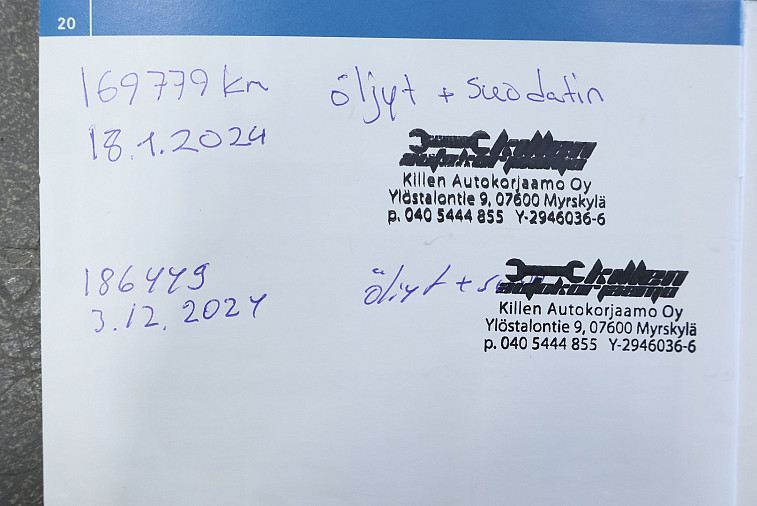 20
169779 km öljyt + suodatin
18.1.2024
killen
Killen Autokorjaamo Oy
Ylöstalontie 9, 07600 Myrskylä
p. 040 5444 855 Y-2946036-6
186449 öljyt +
3.12.2024
killen
Killen Autokorjaamo Oy
Ylöstalontie 9, 07600 Myrskylä
p. 040 5444 855 Y-2946036-6